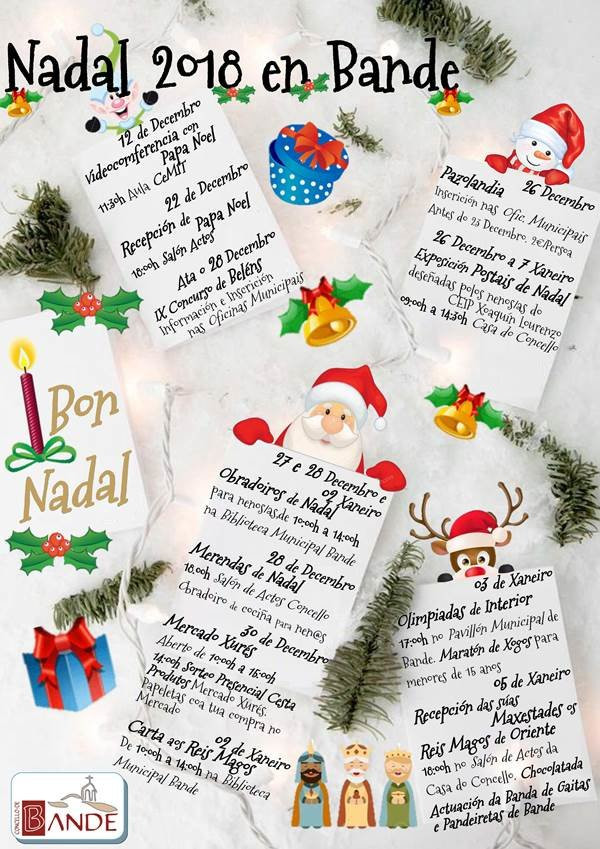 Nadal 2018 en Bande
12 de Decembro
Videocomferencia con
Papa Noel
11:30h Aula CeMIT
22 de Decembro
Recepción de Papa Noel
18:00h Salón Actos
Ata o 28 Decembro
IX Concurso de Beléns
Información e Inscrición
nas Oficinas Municipais
Pazolandia 26 Decembro
Inscrición nas Ofic. Municipais
Antes do 23 Decembro. 2€/Persoa
26 Decembro a 7 Xaneiro
Exposición Postais de Nadal
deseñadas polos nenos/as do
CEIP Xoaquín Lourenzo
09:00h a 14:30h Casa do Concello
Bon
Nadal
27 e 28 Decembro e
02 Xaneiro
Obradoiros de Nadal
Para nenos/as,de 10:00h a 14:00h
na Biblioteca Municipal Bande
28 de Decembro
Merendas de Nadal
18:00h Salón de Actos Concello
Obradoiro de cociña para nen@s
30 de Decembro
Mercado Xurés
Aberto de 10:00h a 15:00h
14:00h Sorteo Presencial Cesta
Produtos Mercado Xurés.
Papeletas coa tua compra no
Mercado
02 de Xaneiro
Carta aos Reis Magos
De 10:00h a 14:00h na Biblioteca
Municipal Bande
03 de Xaneiro
Olimpiadas de Interior
17:00h no Pavillón Municipal de
Bande. Maratón de Xogos para
menores de 15 anos
05 de Xaneiro
Recepción das súas
Maxestades os
Reis Magos de Oriente
18:00h no Salón de Actos da
Casa do Concello. Chocolatada
Actuación da Banda de Gaitas
e Pandeiretas de Bande
CONCELLO DE
BANDE